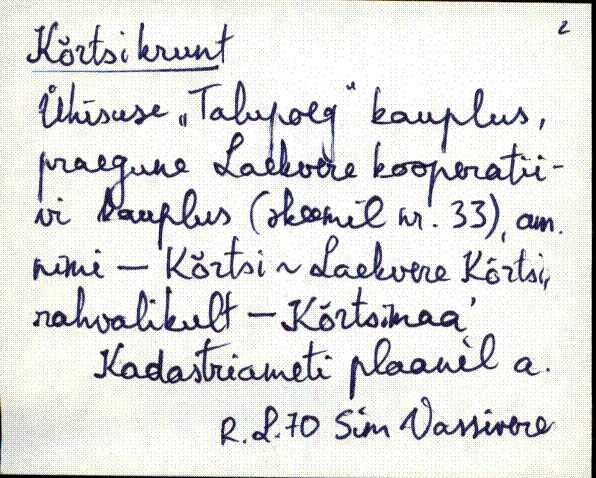 2
Kõrtsikrunt
Ühisuse „Talupoeg" kauplus,
praegune Laekvere kooperatii-
vi kauplus (skeemil nr. 33), am.
nimi — Kõrtsi ~ Laekvere Kõrtsi,
rahvalikult — Kõrtsimaa'
Kadastriameti plaanil a.
R. L. 70 Sim Vassivere